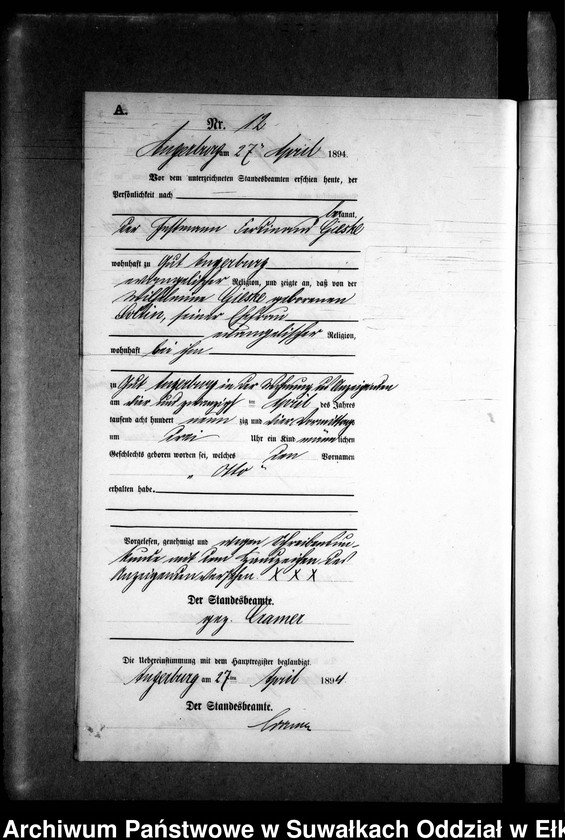 A.
Nr. 12
Angerburg am 27ten April 1894.
Vor dem unterzeichneten Standesbeamten erschien heute, der
Persönlichkeit nach
bekannt,
der Instmann Ferdinand Gieske
wohnhaft zu Gut Angerburg
evangelischer Religion, und zeigte an, daß von der
Wilhelmine Gieske geborenen
seiner Ehefrau
evangelischer Religion,
wohnhaft bei ihm
zu Gut Angerburg in der Wohnung des Anzeigenden
am vier und zwanzigsten April des Jahres
tausend acht hundert neun zig und vier Vormittags
um drei Uhr ein Kind männlichen
Geschlechts geboren worden sei, welches den Vornamen
„ Otto “
erhalten habe.
Vorgelesen, genehmigt und wegen Schreibensun-
kunde mit dem Handzeichen des
Anzeigenden versehen. X X X
Der Standesbeamte.
gez. Cramer
Die Uebereinstimmung mit dem Hauptregister beglaubigt.
Angerburg am 27ten April 1894
Der Standesbeamte.
Cramer
Archiwum Państwowe w Suwałkach Oddział w Ełk